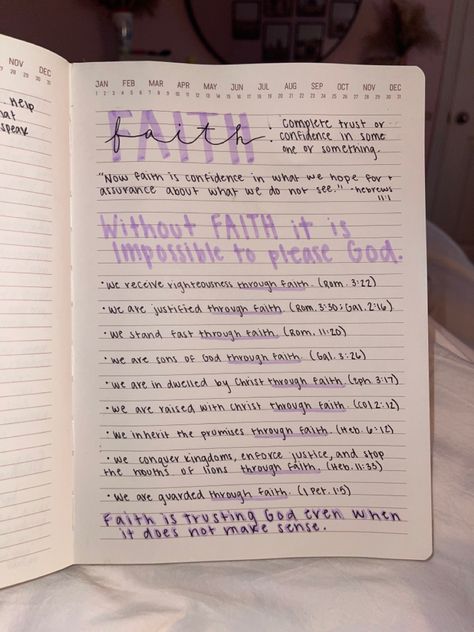 NOV DEC
Help
that
speak
JAN FEB MAR APR MAY JUN JUL AUG SEP OCT NOV DEC
1 2 3 4 5 6 7 8 9 10 11 12 13 14 15 16 17 18 19 20 21 22 23 24 25 26 27 28 29 30 31
FAITH
faith: Complete trust or
confidence in some
one or something.
"Now faith is confidence in what we hope for +
assurance about what we do not see." -hebrews
11:1
Without FAITH it is
impossible to please God.
• we receive righteousness through faith. (Rom. 3:22)
• we are justified through faith. (Rom. 3:30; Gal. 2:16)
• we stand fast through faith. (Rom. 11:20)
• we are sons of God through faith. (Gal. 3:26)
• we are in dwelled by Christ through faith. (Eph. 3:17)
• we are raised with Christ through faith. (Col 2:12)
• we inherit the promises through faith. (Heb. 6:12)
• we conquer kingdoms, enforce justice, and stop
the mouths of lions through faith. (Heb. 11:33)
• we are guarded through faith. (1 Pet. 1:5)
Faith is trusting God even when
it does not make sense.